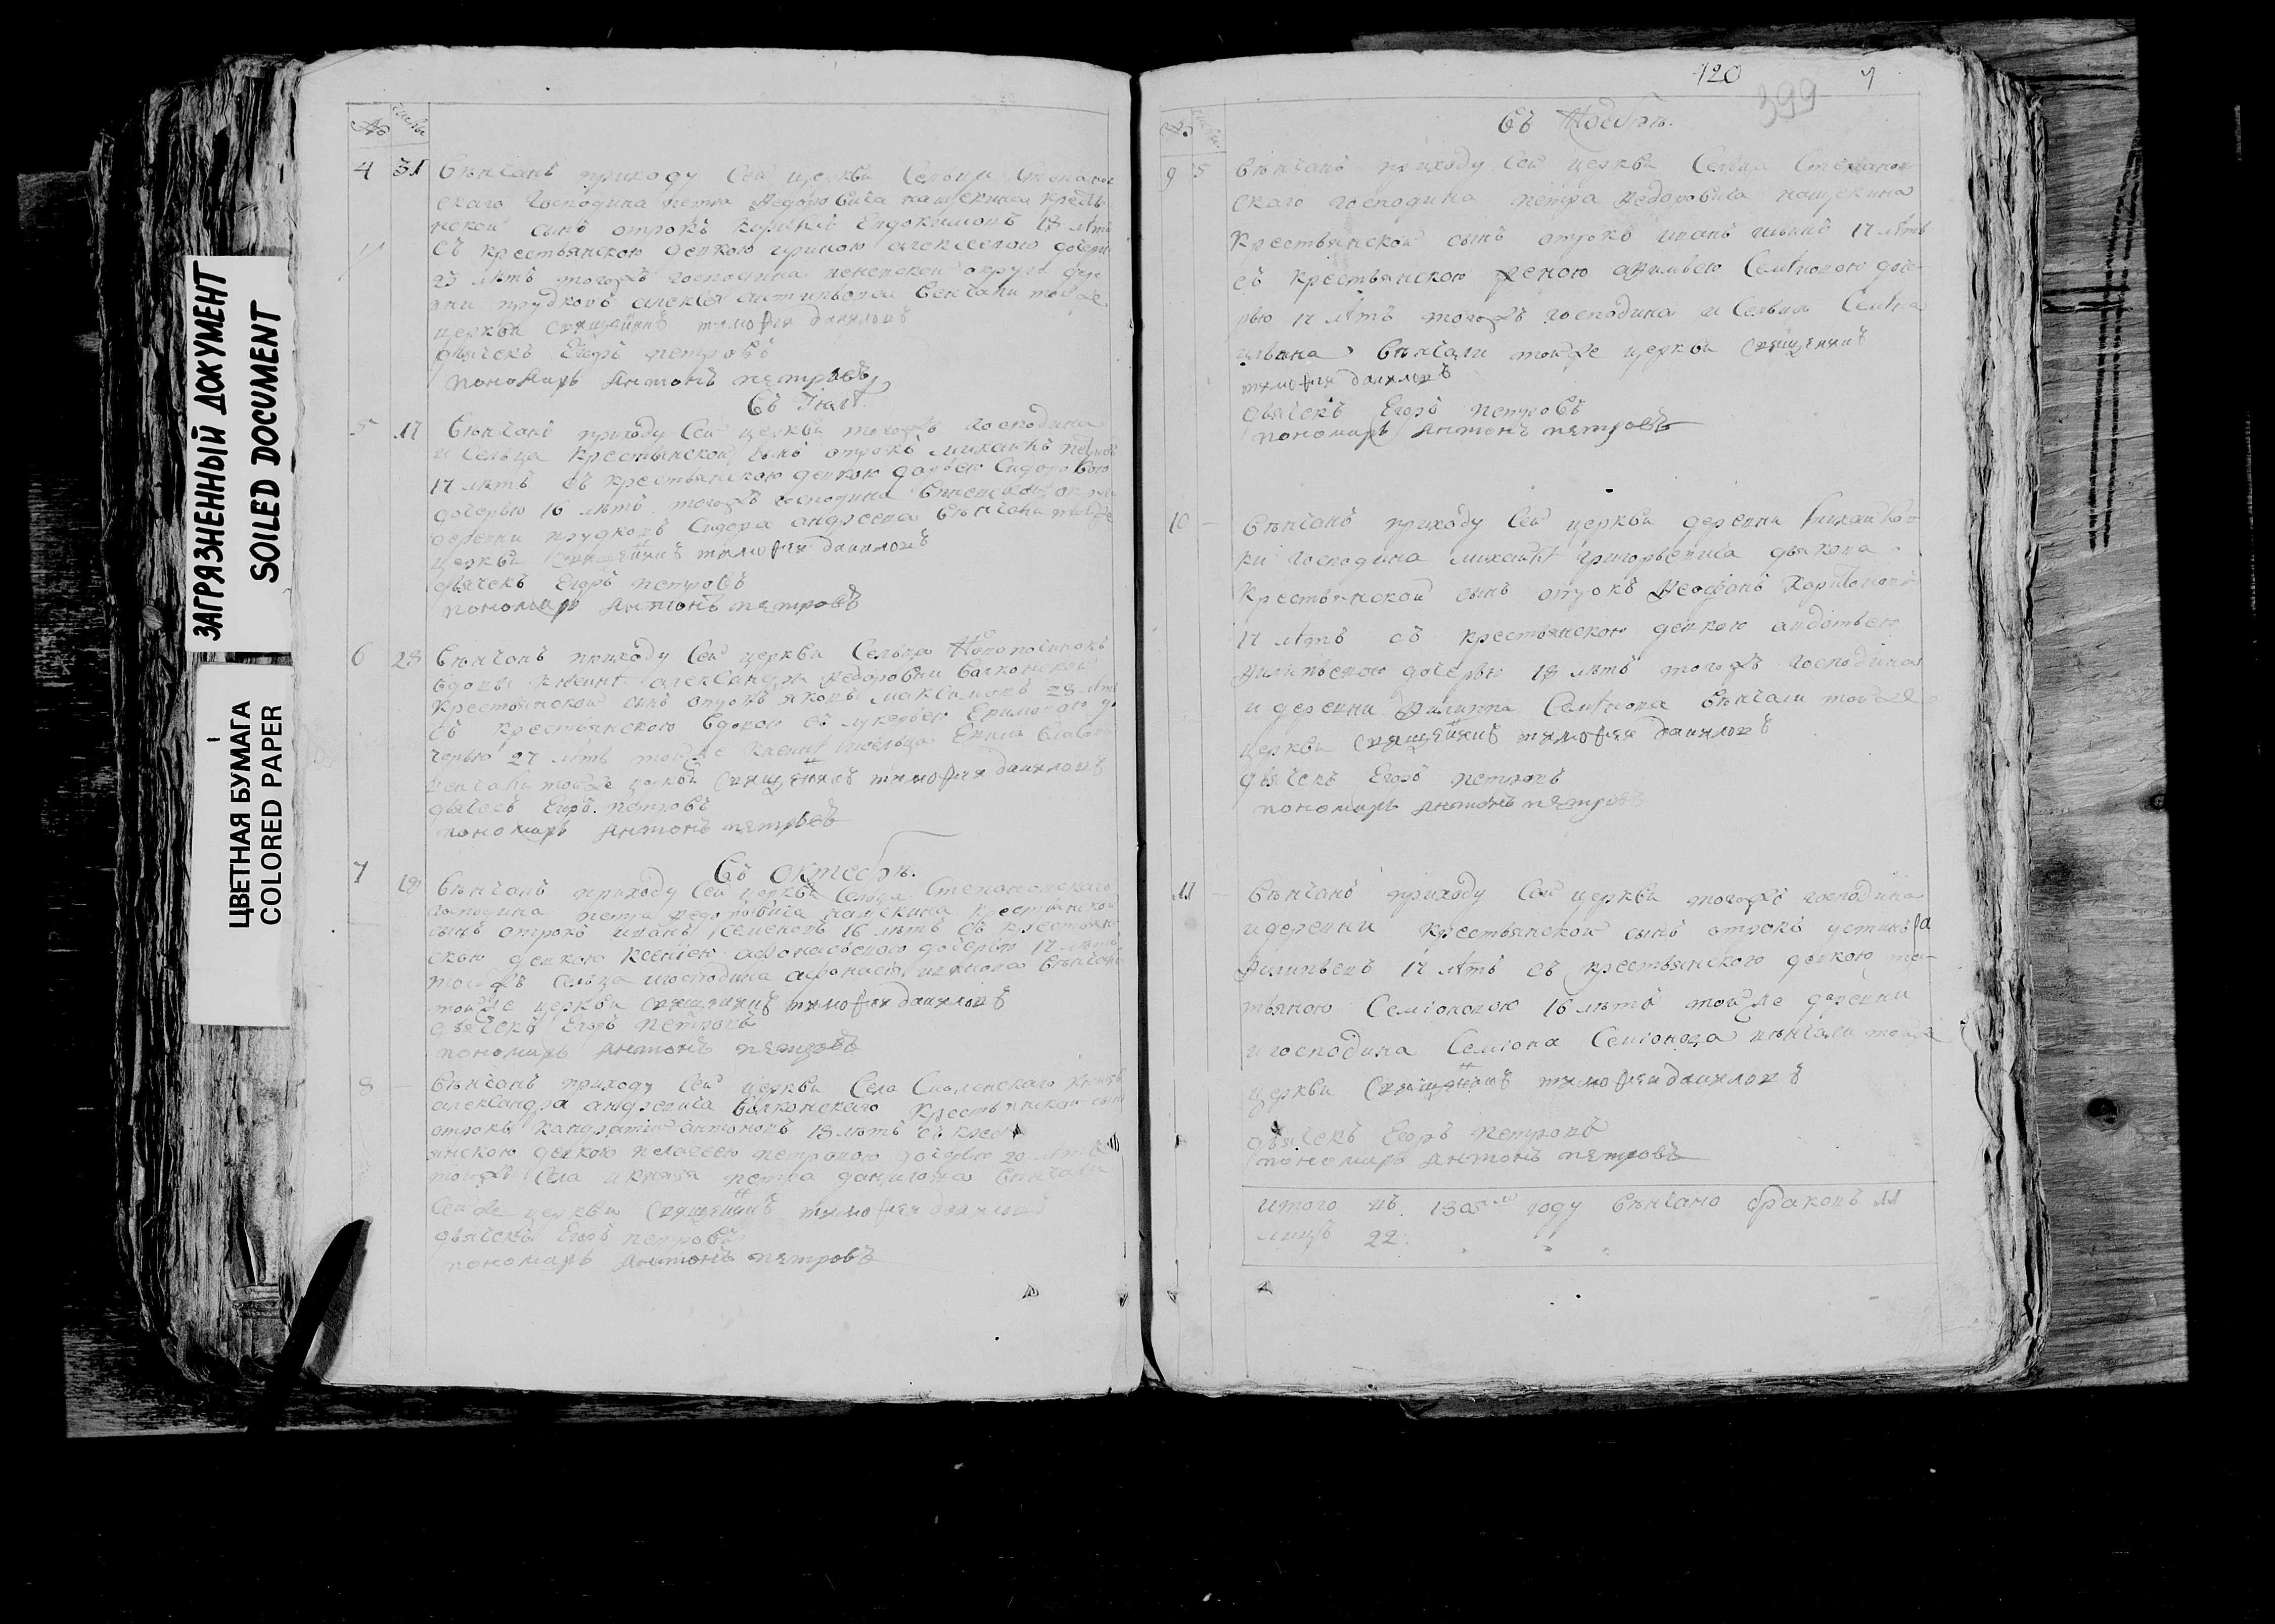 ЗАГРЯЗНЕННЫЙ ДОКУМЕНТ
SOILED DOCUMENT
ЦВЕТНАЯ БУМАГА
COLORED PAPER
№ числа
4 31 Венчанъ приходу Сей церкви Сельца Степанов
скаго Господина петра Федоровича нащекина кресть
нской сынъ отрокъ Евдокимовъ 18 летъ
съ крестьянскою девкою ириною алексеевою дочерью
23 летъ тогожъ господина округи дере
вни прудковъ алексея венчали тойже
церкви священникъ тимофей даниловъ
дьячекъ Егоръ петровъ
пономарь Антонъ петровъ
Въ Iюле.
5 17 Венчанъ приходу Сей церкви тогожъ господина
и Сельца Крестьянской сынъ отрокъ
17 летъ съ крестьянскою девкою дарьею Сидоровою
дочерью 16 летъ тогожъ господина
деревни прудковъ Сидора андреева венчали тойже
церкви священникъ тимофей даниловъ
дьячекъ Егоръ петровъ
пономарь Антонъ петровъ
6 28 Венчанъ приходу Сей церкви Сельца
вдовы княгине александры Федоровны волконской
Крестьянской сынъ отрокъ яковъ максимовъ 28 летъ
съ крестьянскою вдовою лукерьею Ермиловою до
черью 27 летъ тойже княгине и сельца
венчали тойже церкви священникъ тимофей даниловъ
дьячекъ Егоръ петровъ
пономарь Антонъ петровъ
Въ октебре.
7 18 Венчанъ приходу Сей церкви Сельца Степановскаго
Господина петра Федоровича нащекина крестьянской
сынъ отрокъ иванъ Семеновъ 16 летъ съ крестьян
скою девкою ксениею афонасьевою дочерью 17 летъ
тогожъ сельца и господина афонасия венчали
тойже церкви священникъ тимофей даниловъ
дьячекъ Егоръ петровъ
пономарь Антонъ петровъ
8 — Венчанъ приходу Сей церкви Села Смоленскаго князя
александра андреевича волконскаго Крестьянской сынъ
отрокъ антоновъ 18 летъ съ кресть
янскою девкою пелагеею петровою дочерью 20 летъ
тогожъ Села и князя петра данилова венчали
Сейже церкви священникъ тимофей даниловъ
дьячекъ Егоръ петровъ
пономарь Антонъ петровъ
420
399
№ числа
Въ Ноебре.
9 5 Венчанъ приходу Сей церкви Сельца Степанов
скаго господина петра Федоровича нащекина
Крестьянской сынъ отрокъ иванъ 17 летъ
съ крестьянскою Семионовою доче
рью 17 летъ тогожъ господина и Сельца Семиона
венчали тойже церкви священникъ
тимофей даниловъ
дьячекъ Егоръ петровъ
пономарь Антонъ петровъ
10 — Венчанъ приходу Сей церкви деревни михайлов
ки господина григорьевича дьякова
Крестьянской сынъ отрокъ Харитоновъ
17 летъ съ крестьянскою девкою авдотьею
Филипьевою дочерью 18 летъ тогожъ господина
и деревни Филиппа Семионова венчали тойже
церкви священникъ тимофей даниловъ
дьячекъ Егоръ петровъ
пономарь Антонъ петровъ
11 — Венчанъ приходу Сей церкви тогожъ господина
и деревни Крестьянской сынъ отрокъ устинъ
Филипьевъ 17 летъ съ крестьянскою девкою та-
тьяною Семионовою 16 летъ тойже деревни
и господина Семиона Семионова венчали тойже
церкви священникъ тимофей даниловъ
дьячекъ Егоръ петровъ
пономарь Антонъ петровъ
итого въ 1805м году венчано браковъ 11
лицъ 22.